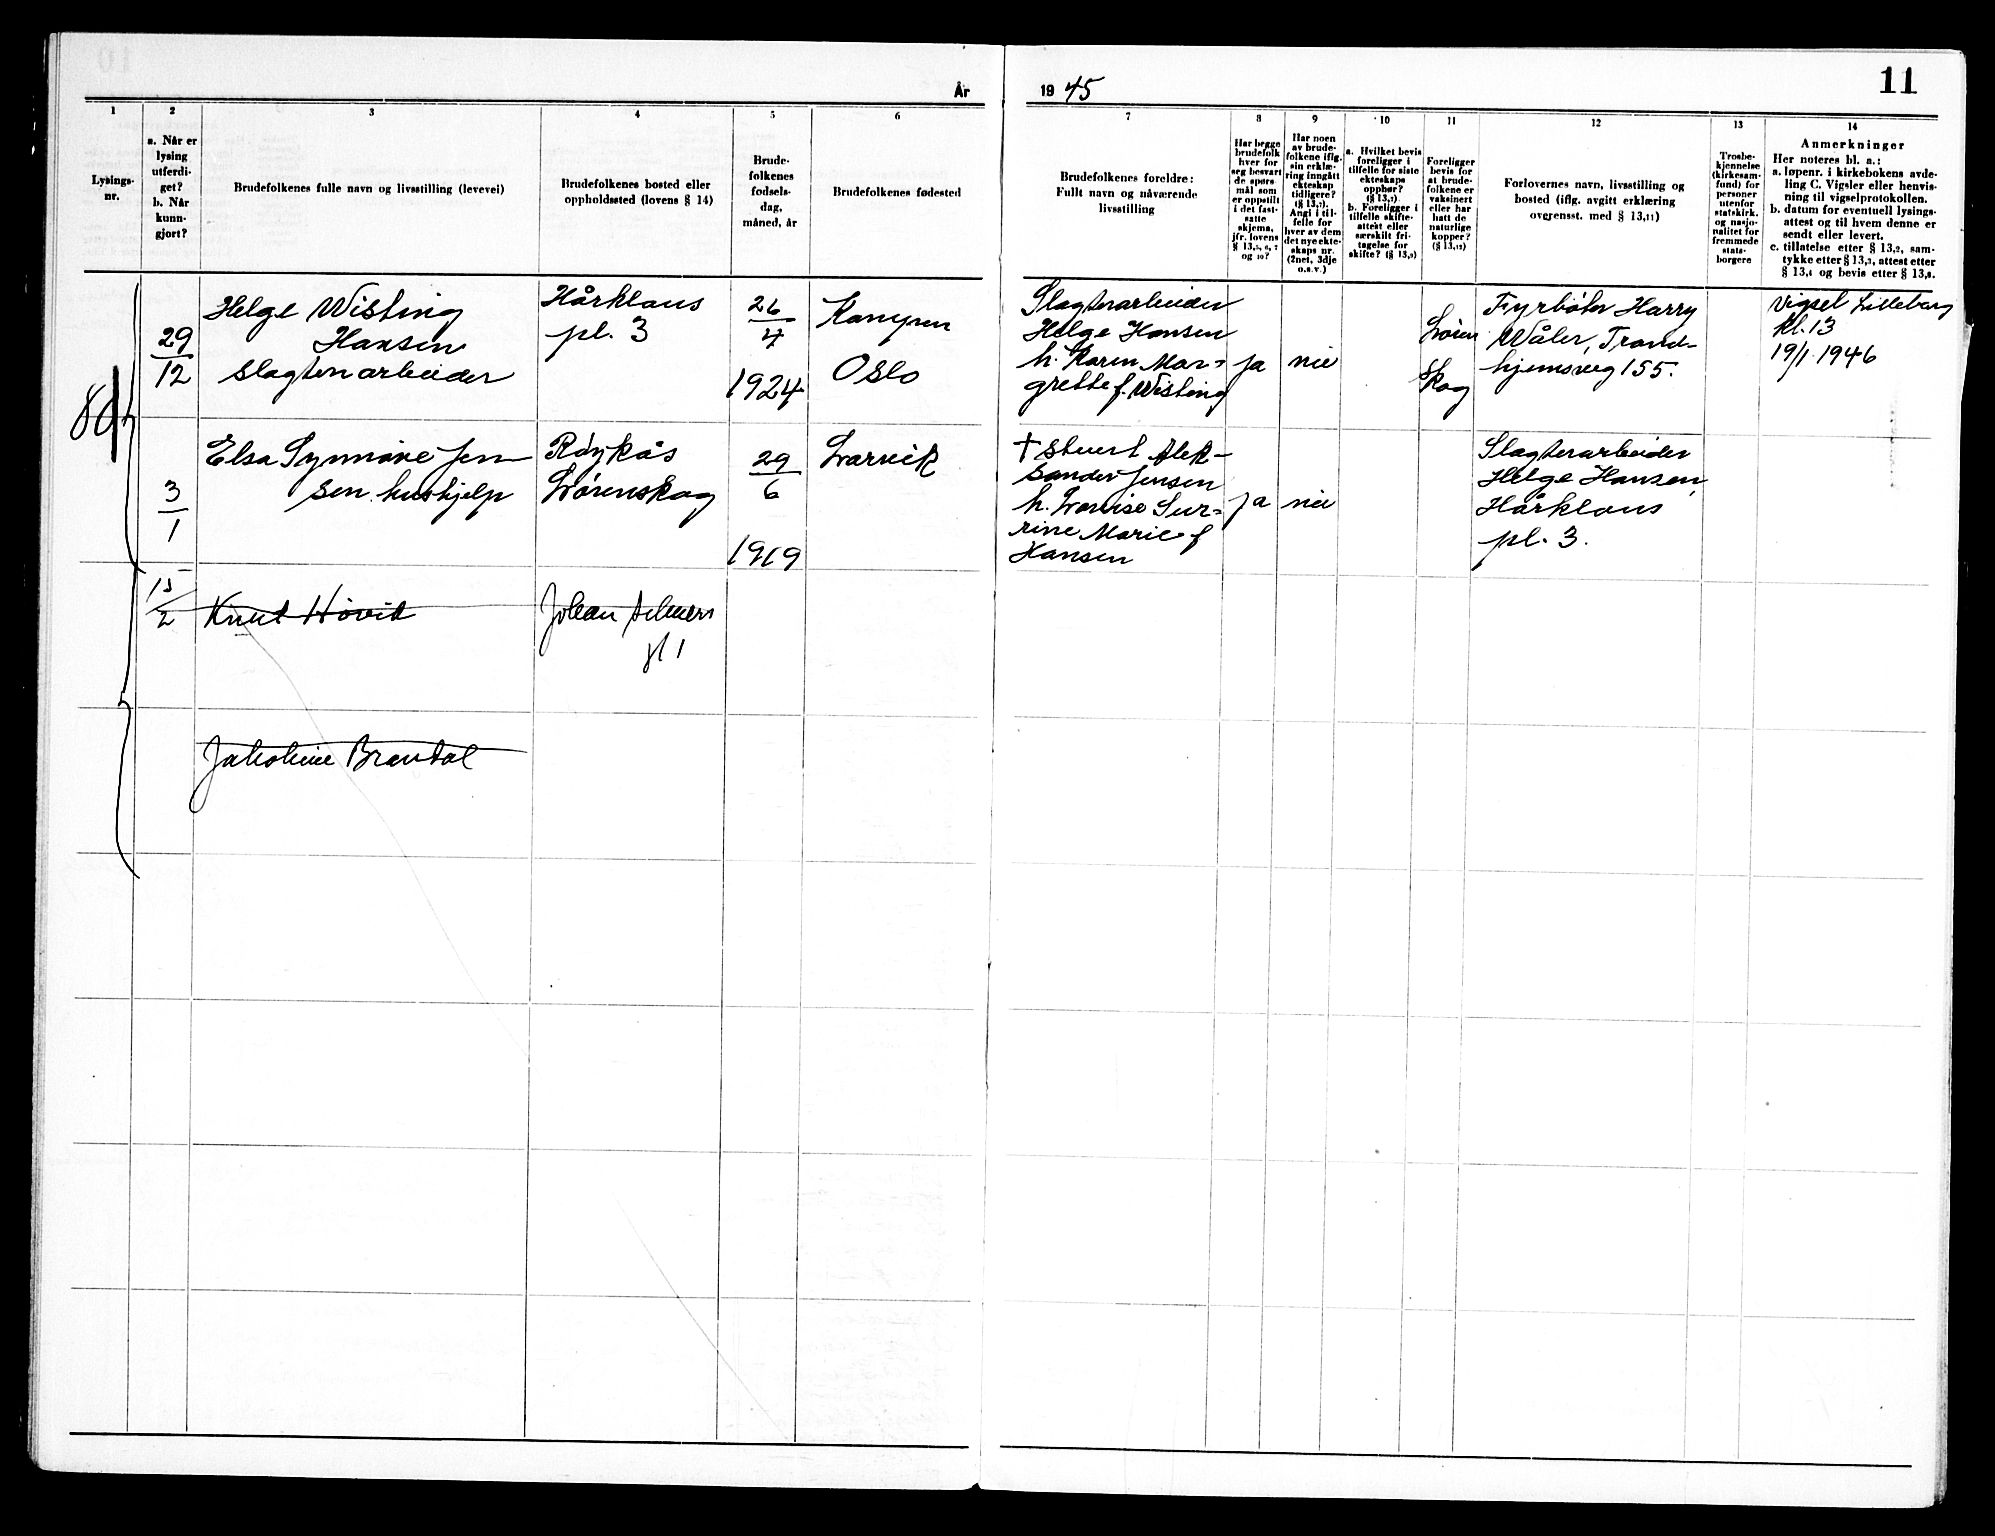 År
19 45
11
1
2
3
4
5
6
7
8
9
10
11
12
13
14
Lysings-
nr.
a. Når er
lysing
utferdi-
get?
b. Når
kunn-
gjort?
Brudefolkenes fulle navn og livsstilling (levevei)
Brudefolkenes bosted eller
oppholdssted (lovens § 14)
Brude-
folkenes
fødsels-
dag,
måned, år
Brudefolkenes fødested
Brudefolkenes foreldre:
Fullt navn og nåværende
livsstilling
Har begge
brudefolk
hver for
seg besvart
de spørs-
mål som
er oppstilt
i det fast-
satte
skjema,
jfr. lovens
§ 13,5, 6, 7
og 10?
Har noen
av brude-
folkene iflg.
sin erklæ-
ring inngått
ekteskap
tidligere?
(§ 13,7).
Angi i til-
felle for
hver av dem
det nye ekte-
skaps nr.
(2net, 3dje
o.s.v.)
a. Hvilket bevis
foreligger i
tilfelle for siste
ekteskaps
opphør?
(§ 13,7)
b. Foreligger i
tilfelle skifte-
attest eller
særskilt fri-
tagelse for
skifte? (§ 13,9)
Foreligger
bevis for
at brude-
folkene er
vaksinert
eller har
hatt de
naturlige
kopper?
(§ 13,12)
Forlovernes navn, livsstilling og
bosted (iflg. avgitt erklæring
overensst. med § 13,11)
Trosbe-
kjennelse
(kirkesam-
fund) for
personer
utenfor
statskirk.
og nasjo-
nalitet for
fremmede
stats-
borgere
Anmerkninger
Her noteres bl. a.:
a. løpenr. i kirkebokens avde-
ling C. Vigsler eller henvis-
ning til vigselprotokollen.
b. datum for eventuell lysings-
attest og til hvem denne er
sendt eller levert.
c. tillatelse etter § 13,2, sam-
tykke etter § 13,3, attest etter
§ 13,4 og bevis etter § 13,8.
29
12
Helge Wisting
Hansen
slagterarbeider
Hårklous
pl. 3
26
4
1924
Kampen
Oslo
Slagterarbeider
Helge Hansen
h. Karen Mar-
grethe f. Wisting
ja
nei
Løren
skog
Fyrbøter Harry
Wåler, Trond-
hjemsveg 155.
Vigsel Lilleborg
kl. 13
19/1 1946
3
1
Elsa Synnøve Jen
sen. hushjelp
Røykås
Lørenskog
29
6
1919
Larvik
† Sivert Alek-
sander Jensen
h. Lovise Sur-
rine Marie f
Hansen
ja
nei
Slagterarbeider
Helge Hansen,
Hårklous
pl. 3.
15
2
Knut Høvik
Johan
pl 1
Brandal